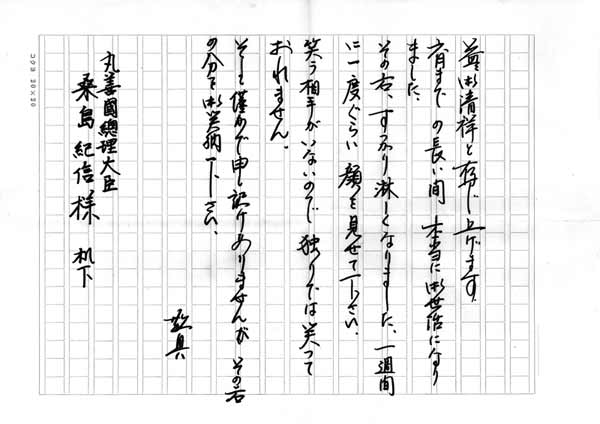 益々御清祥と存じ上げます。
月まで の長い間 本当に御世話になり
ました。
その后、すっかり淋しくなりました、一週間
に一度ぐらい 顔を見せて下さい。
笑う相手がいないので 独りでは笑って
おれません。
そして僅かで申し訳ありませんが その
の分を御笑納下さい、
敬具
丸善國總理大臣
桑島紀信様 机下
コクヨ 20×20